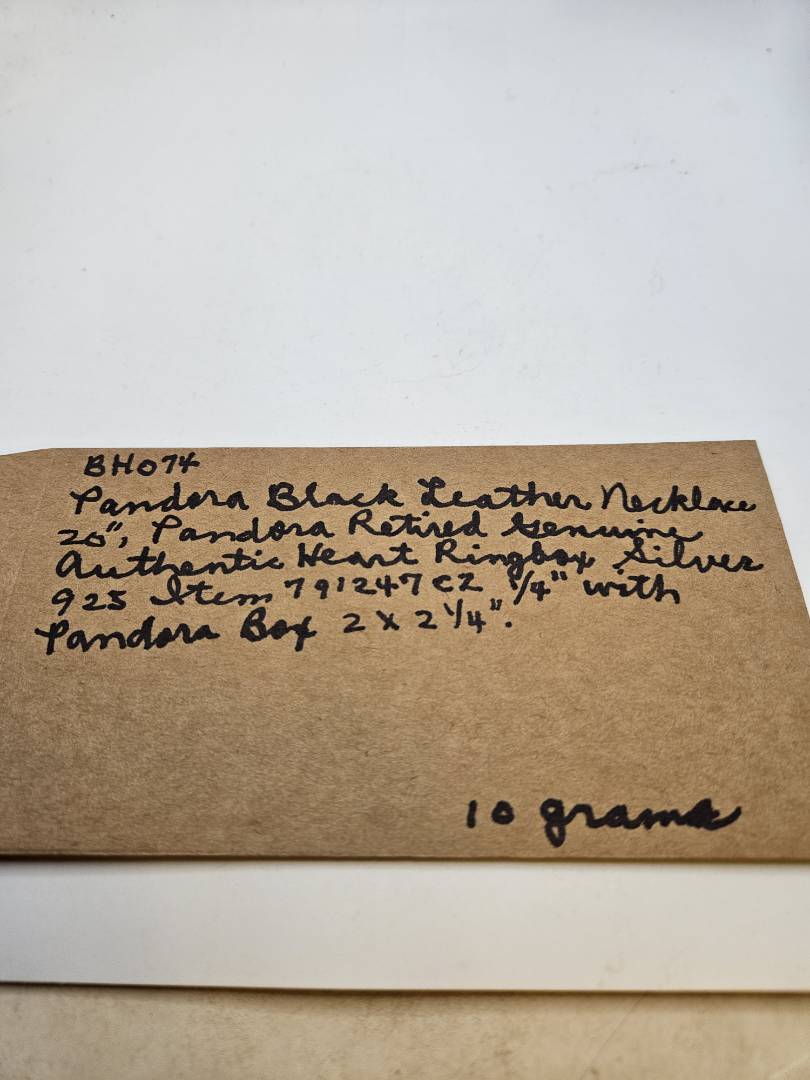 BH074
Pandora Black Leather Necklace
20", Pandora Retired Genuine
Authentic Heart Ringbox Silver
925 Item 791247CZ 1/4" with
Pandora Box 2 x 2 1/4".
10 grams